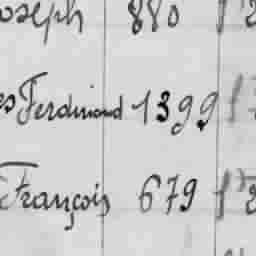 oseph 880
es Ferdinand 1399
François 679